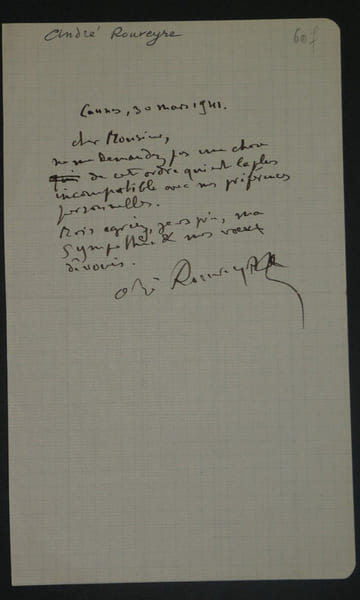 André Rouveyre
60 f
Cannes, 30 mars 1941.
cher Monsieur,
ne me demandez pas une chose
de cet ordre qui est la plus
incompatible avec mes préférences
personnelles.
Mais agréez, je vous prie, ma
sympathie & mes vœux
dévoués.
André Rouveyre